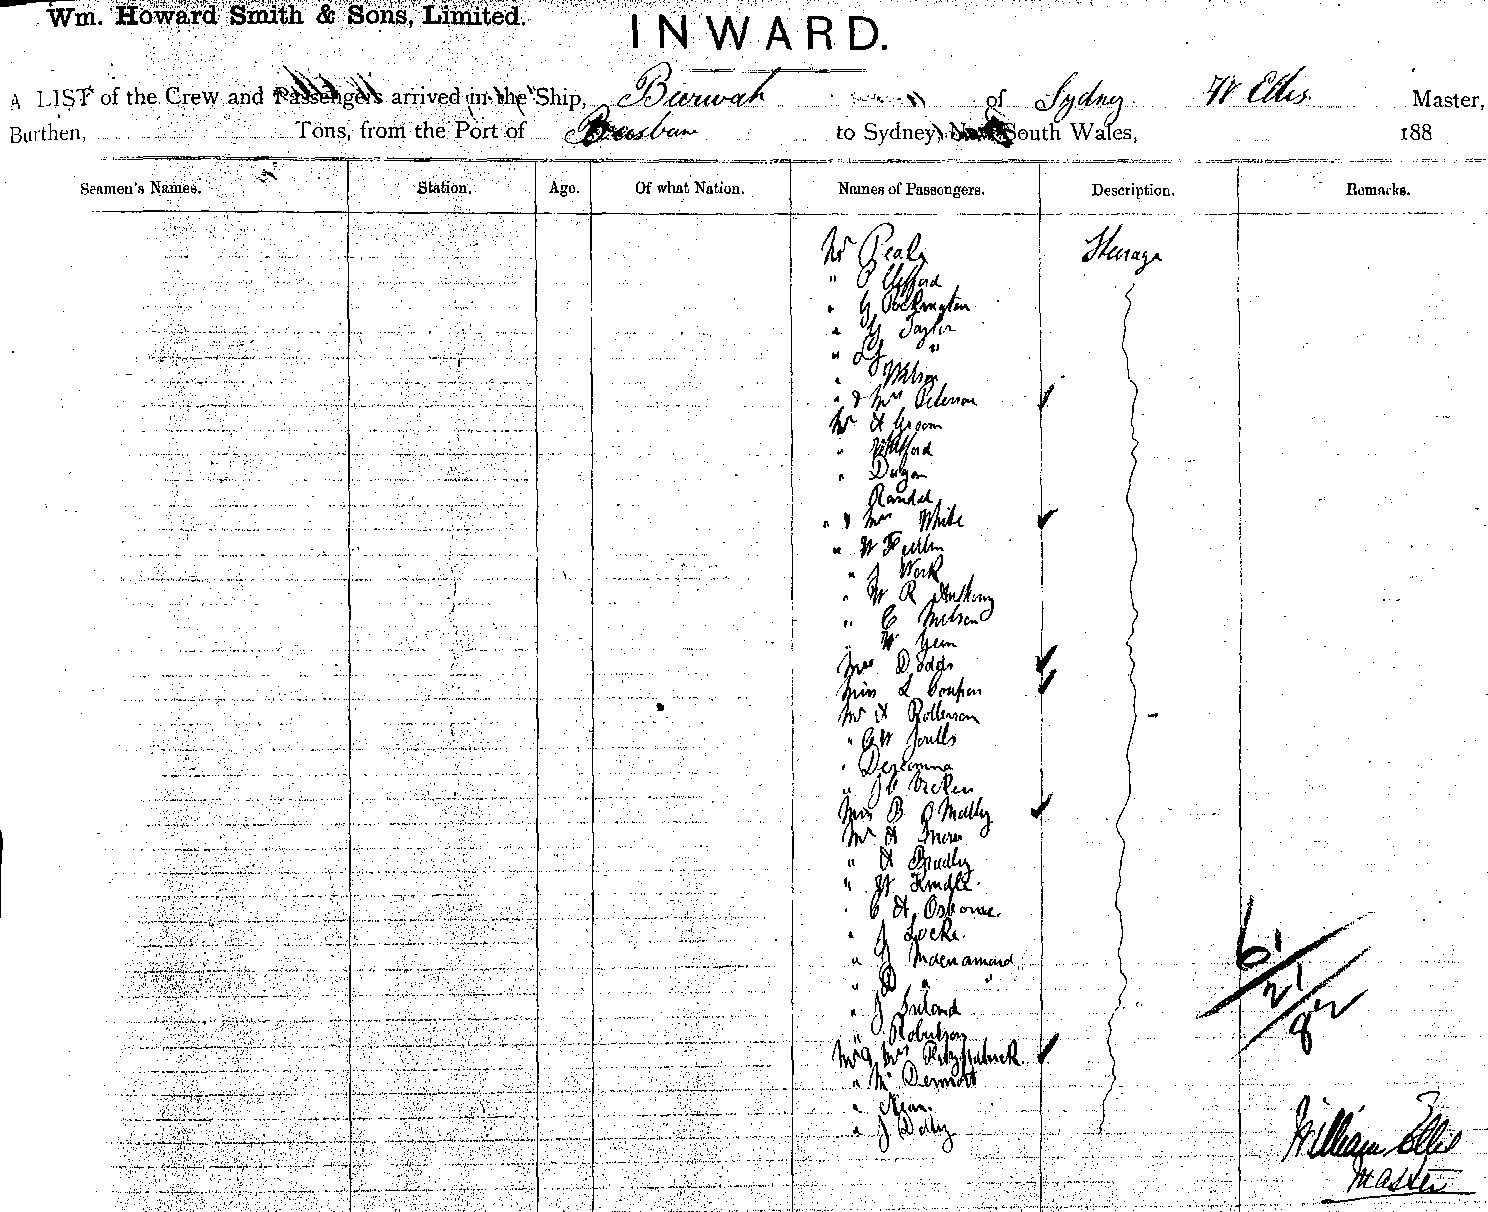 Wm. Howard Smith & Sons, Limited.
INWARD.
A LIST of the Crew and Passengers arrived in the Ship, Burwah of Sydney W Ellis Master,
Burthen, Tons, from the Port of Brisbane to Sydney, New South Wales, 188
Seamen's Names. Station. Age. Of what Nation. Names of Passengers. Description. Remarks.
Mr Steerage
" P Clifford
" G
" G Taylor
" "
" Wilson
" & Mrs Peterson
Mr H Groom
"
" Dugan
Randal
" & Mrs White
" W
" J Work
" W R Anthony
" C Nelson
" W
Mrs Dodds
Miss L Couper
Mr H Rollerson
" C W
"
" J C
Miss B Malley
Mr H
" H Bradley
" W Kindle.
" C H Osborne.
" J Locke.
" J Macnamara
" D " "
" J Ireland
" Robertson
Mr & Mrs Fitzpatrick.
" McDermott
" Ryan.
" J Daley
61
21
82
William Ellis
Master